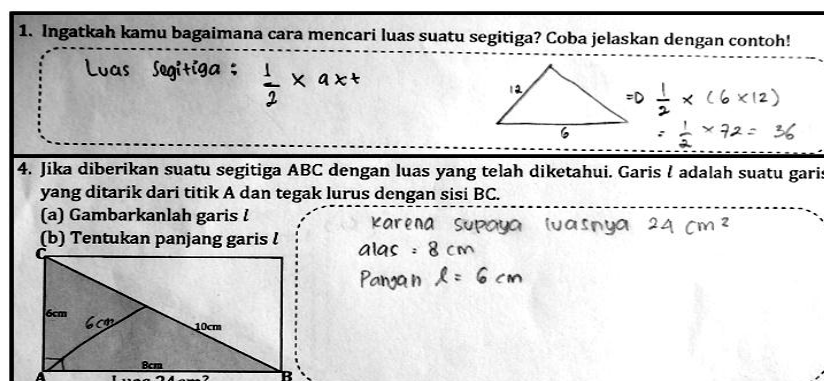 1. Ingatkah kamu bagaimana cara mencari luas suatu segitiga? Coba jelaskan dengan contoh!
Luas Segitiga : 1/2 × a×t
12
6
=D 1/2 × (6×12)
= 1/2 × 72 = 36
4. Jika diberikan suatu segitiga ABC dengan luas yang telah diketahui. Garis l adalah suatu garis
yang ditarik dari titik A dan tegak lurus dengan sisi BC.
(a) Gambarkanlah garis l
(b) Tentukan panjang garis l
C
6cm
6cm
10cm
8cm
A
B
Karena supaya luasnya 24 cm²
alas = 8 cm
Pangan l = 6 cm